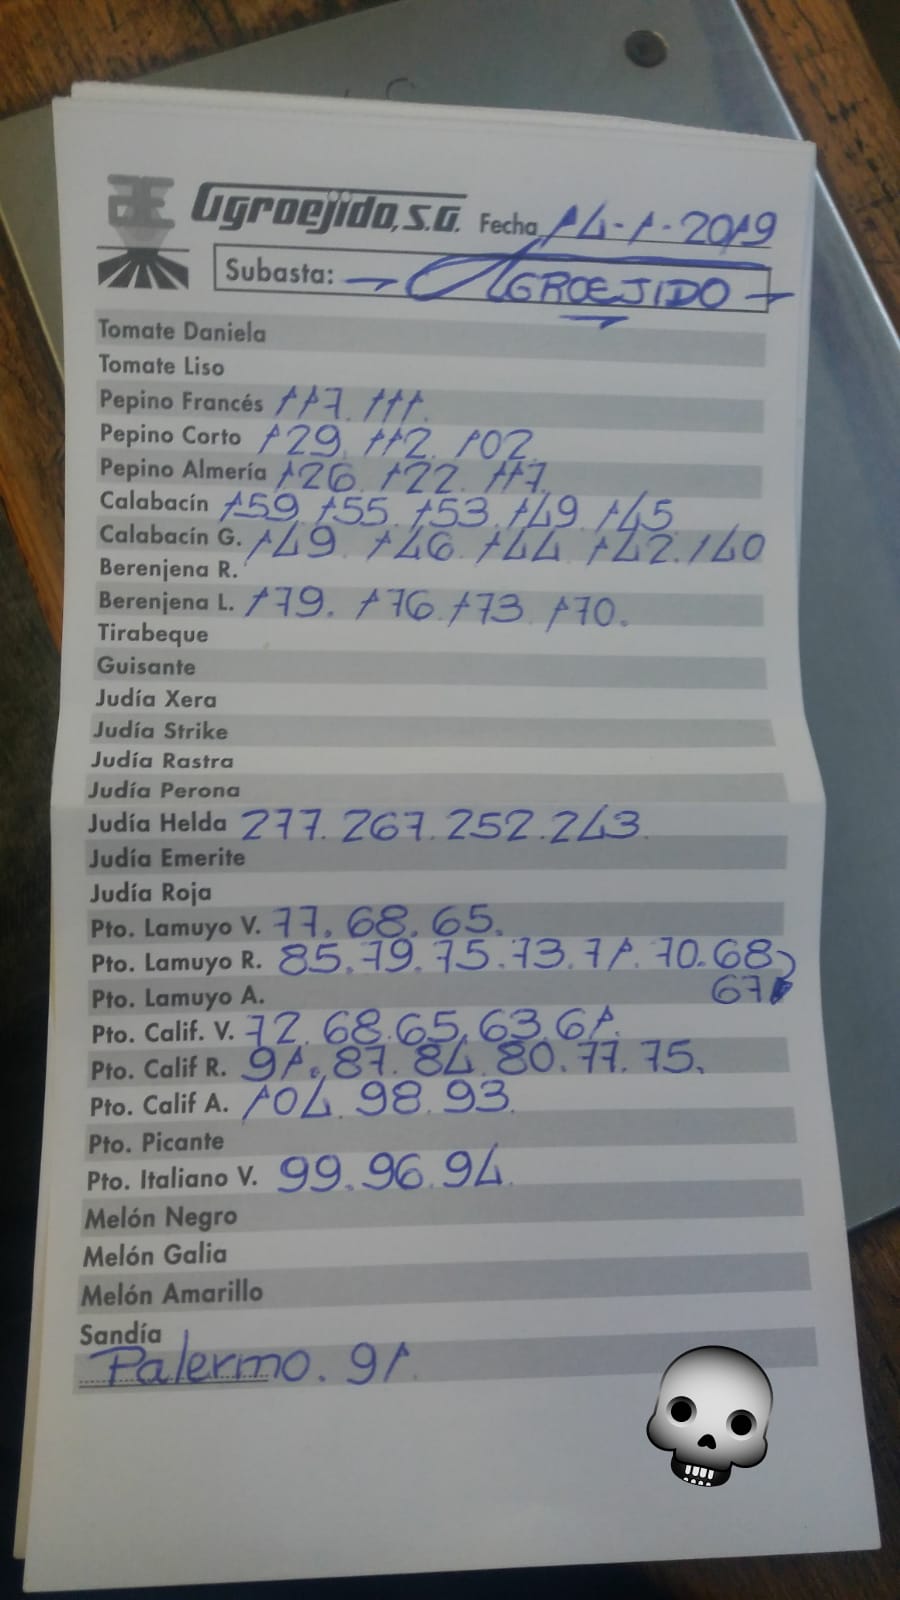 Agroejido, S.A. Fecha 14-1-2019
Subasta: AGROEJIDO
Tomate Daniela
Tomate Liso
Pepino Francés 117. 111.
Pepino Corto 129. 112. 102.
Pepino Almería 126. 122. 117.
Calabacín 159. 155. 153. 149. 145
Calabacín G. 149. 146. 144. 142. 140
Berenjena R.
Berenjena L. 179. 176. 173. 170.
Tirabeque
Guisante
Judía Xera
Judía Strike
Judía Rastra
Judía Perona
Judía Helda 277. 267. 252. 243.
Judía Emerite
Judía Roja
Pto. Lamuyo V. 77. 68. 65.
Pto. Lamuyo R. 85. 79. 75. 73. 71. 70. 68
67
Pto. Lamuyo A.
Pto. Calif. V. 72. 68. 65. 63. 61.
Pto. Calif R. 91. 87. 84. 80. 77. 75.
Pto. Calif A. 104. 98. 93.
Pto. Picante
Pto. Italiano V. 99. 96. 94.
Melón Negro
Melón Galia
Melón Amarillo
Sandía
Palermo. 91.